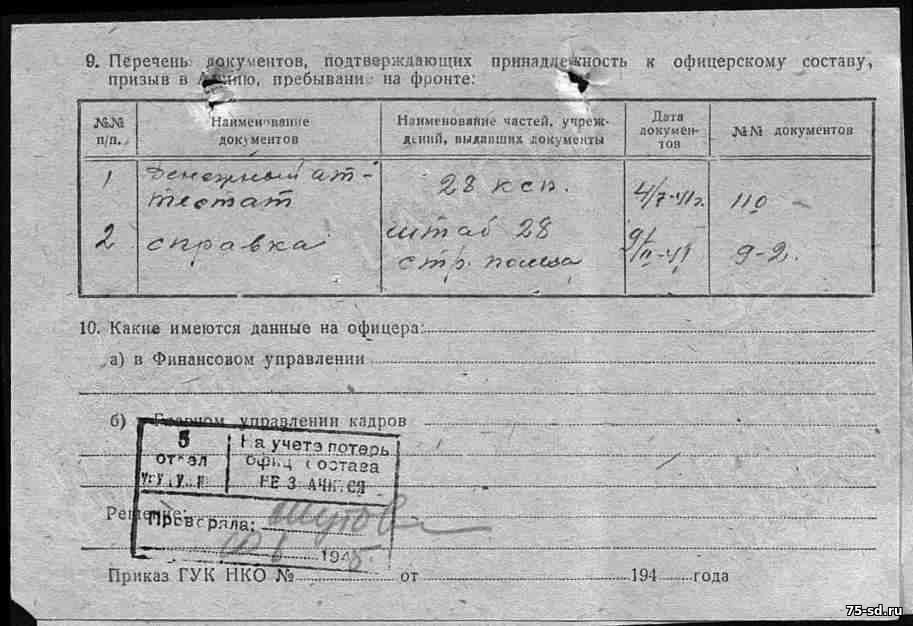 9. Перечень документов, подтверждающих принадлежность к офицерскому составу,
призыв в Армию, пребывание на фронте:
№№ п/п.
Наименование документов
Наименование частей, учреж-
дений, выдавших документы
Дата
докумен-
тов
№№ документов
1 Денежный ат-
тестат
28 ксп.
4/7-41г.
110 -
2 справка
штаб 28
стр. полка
9/II-41
9-2.
10. Какие имеются данные на офицера:
а) в Финансовом управлении
б) Главном управлении кадров
5
отдел
На учете потерь
офиц. состава
НЕ ЗНАЧИТСЯ
Решение:
Проверяла:
1945
Приказ ГУК НКО № от 194 года
75-sd.ru